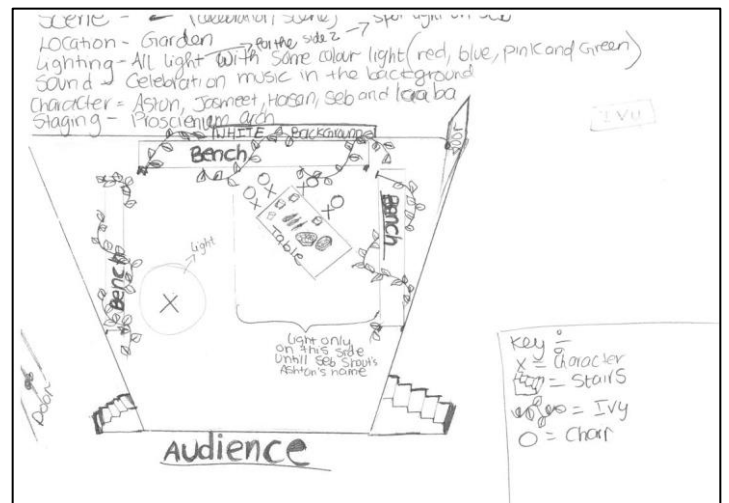 Scene - 2 (celebration/scene) → spot light on seb
Location - Garden → for the side 2
Lighting - All light with some colour light (red, blue, pink and Green)
Sound → Celebration music in the background
Character = Aston, Jasmeet, Hasan, Seb and
Staging - Proscienium arch
WHITE Background
Door
Bench
IVU
Bench
Table
Bench
light
X
X
X
X
X
light only
on this side
Untill Seb Shout's
Ashton's name
Door
AUDIENCE
Key :
X = Character
= Stairs
= Ivy
O = Chair